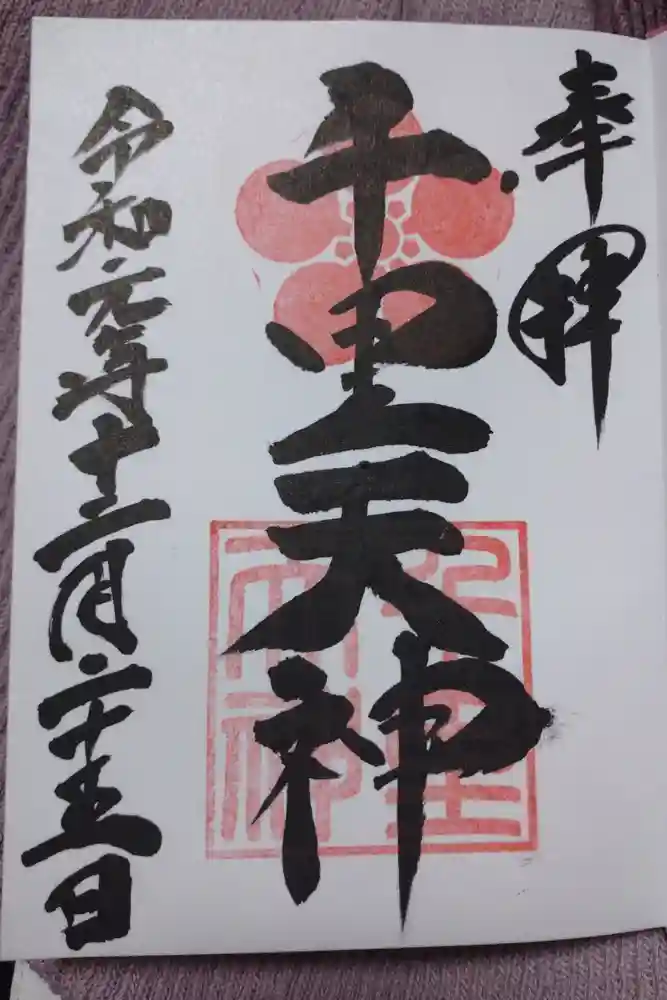 奉拝
千里天神
千里天神
令和元年十二月二十五日